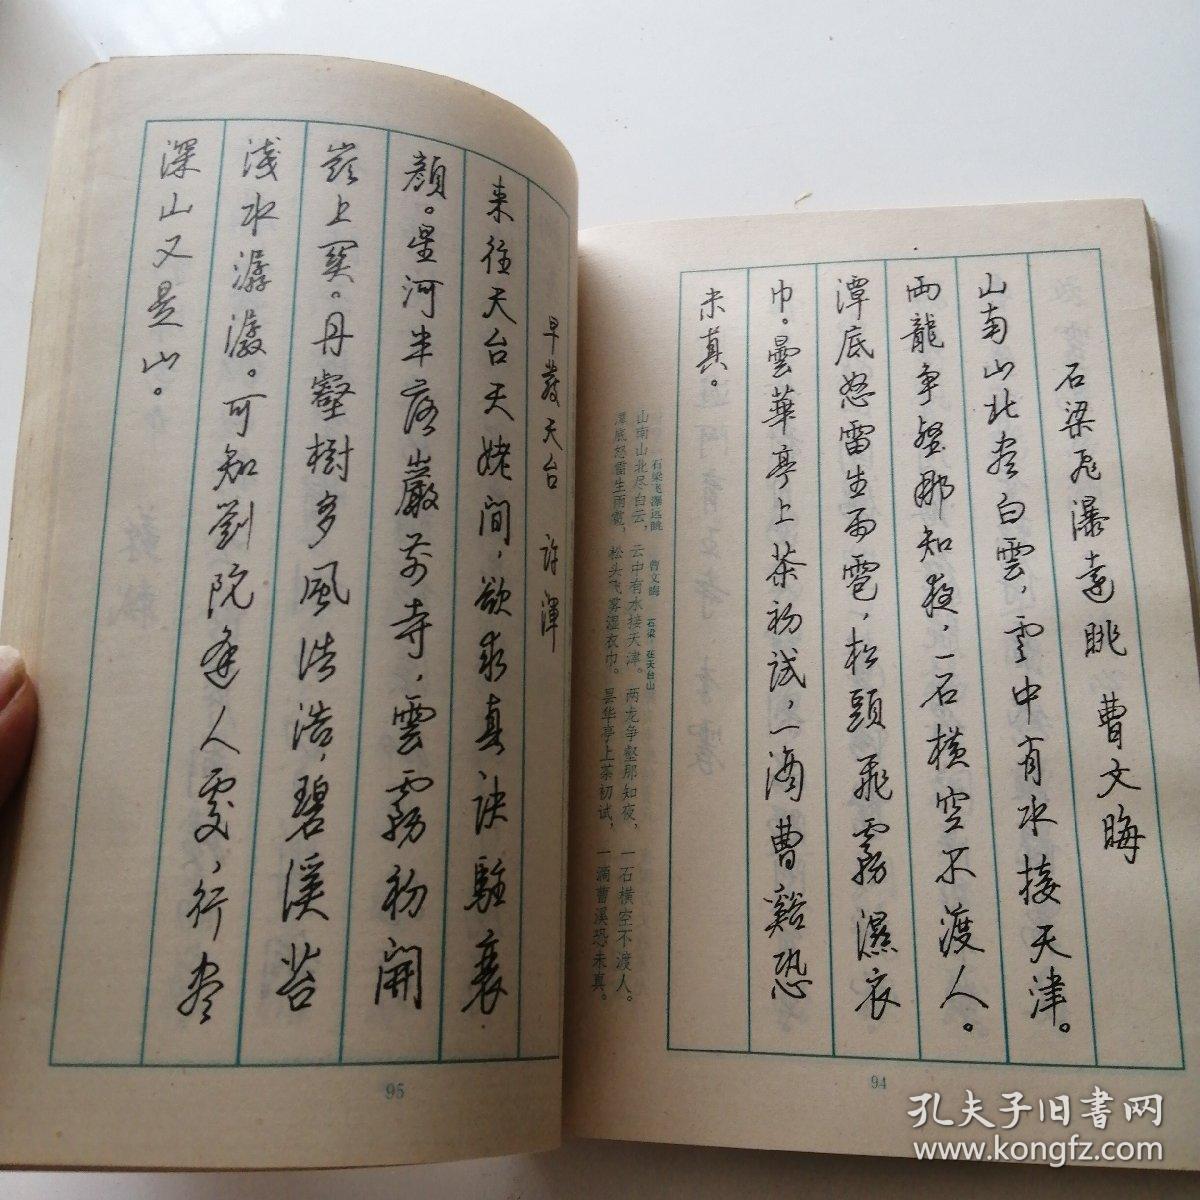 石梁飛瀑遠眺 曹文晦
山南山北盡白雲，雲中有水接天津。
兩龍爭壑那知夜，一石橫空不渡人。
潭底怒雷生雨雹，松頭飛霧濕衣
巾。曇華亭上茶初試，一滴曹谿恐
未真。
石梁飞瀑远眺 曹文晦 石梁 在天台山
山南山北尽白云，云中有水接天津。两龙争壑那知夜，一石横空不渡人。
潭底怒雷生雨雹，松头飞雾湿衣巾。昙华亭上茶初试，一滴曹溪恐未真。
94
早發天台 許渾
來往天台天姥間，欲求真訣駐衰
顏。星河半落巖前寺，雲霧初開
嶺上關。丹壑樹多風浩浩，碧溪苔
淺水潺潺。可知劉阮逢人處，行盡
深山又是山。
95
孔夫子旧书网
www.kongfz.com